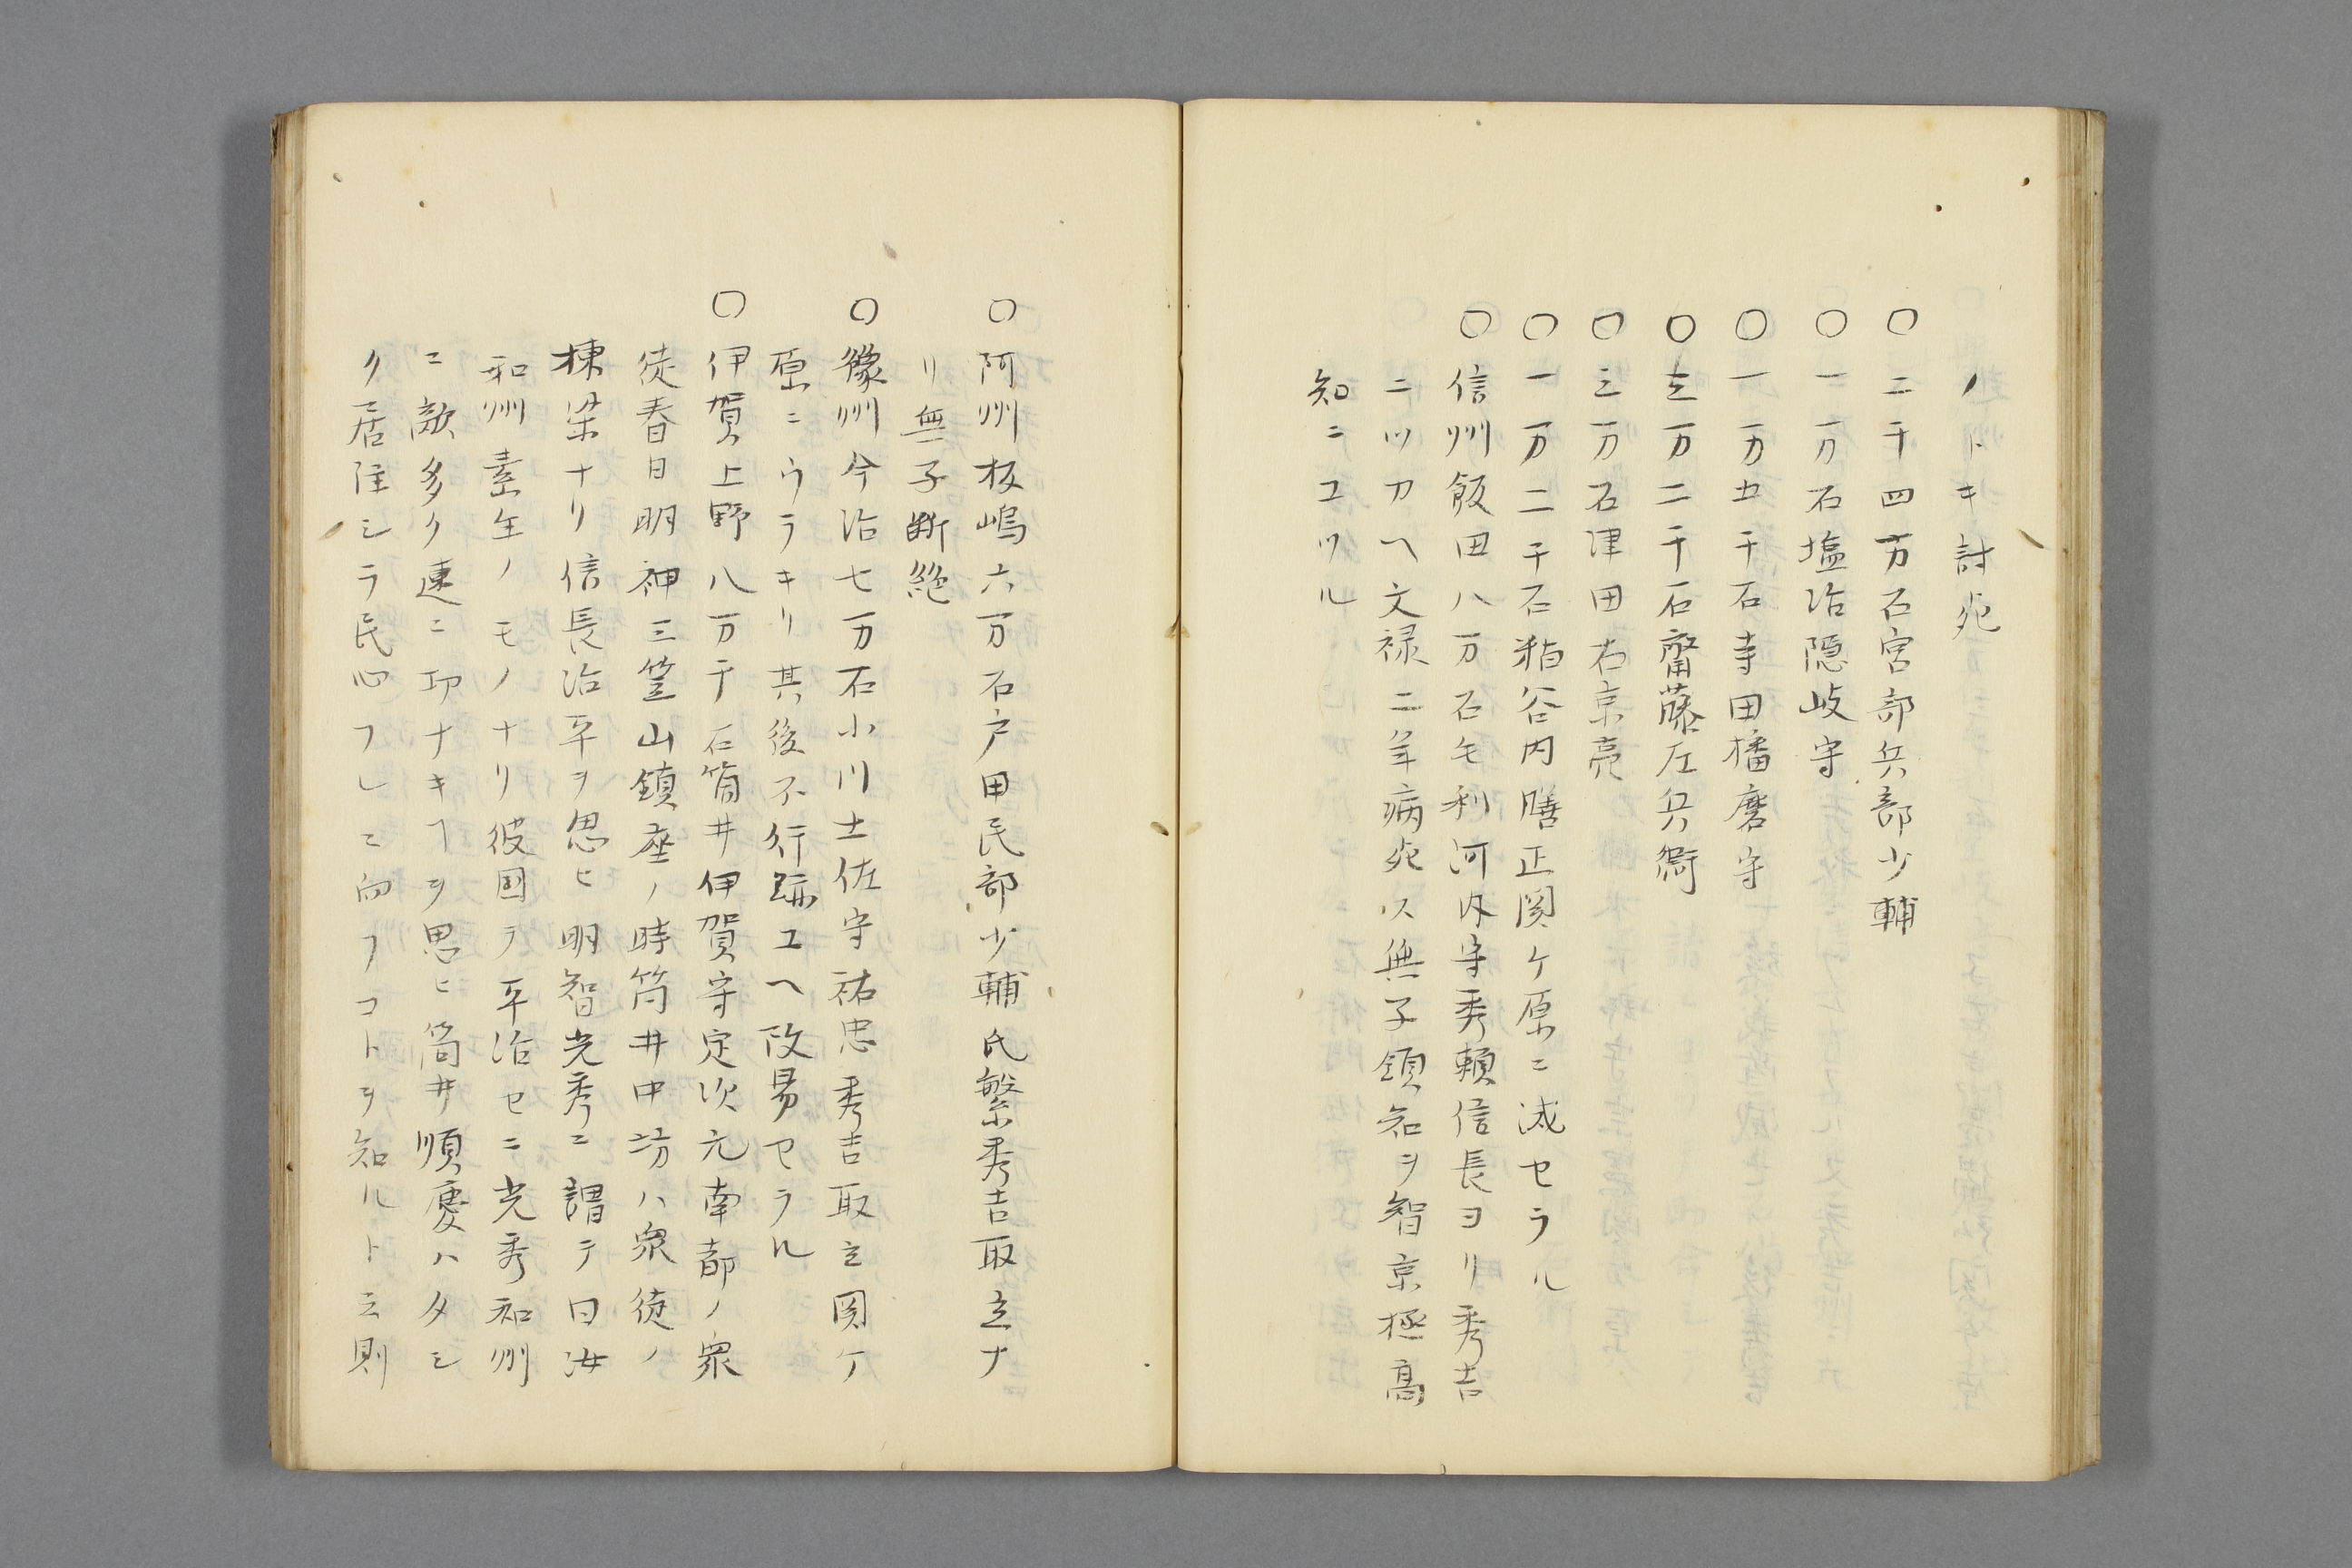 ノトキ討死
〇二千四万石宮部兵部少輔
〇一万石塩冶隠岐守
〇一万五千石寺田播磨守
〇立万二千石齋藤左兵衛
〇三万石津田右京亮
〇一万二千石粕谷内膳正関ケ原ニ滅セラル
〇信州飯田八万石毛利河内守秀頼信長ヨリ秀吉
ニツカヘ文禄二年病死以無子領知ヲ智京極高
知ニユツル
〇阿州板嶋六万石戸田民部少輔氏繁秀吉取立ナ
リ無子断絶
〇豫州今治七万石小川土佐守祐忠秀吉取立関ケ
原ニウラキリ其後不行跡ユヘ改易セラル
〇伊賀上野八万千石筒井伊賀守定次元南都ノ衆
徒春日明神三笠山鎮座ノ時筒井中坊ハ衆徒ノ
棟梁ナリ信長治平ヲ思ヒ明智光秀ニ謂テ曰汝
和州素生ノモノナリ彼国ヲ平治セニ光秀和州
ニ敵多ク速ニ功ナキヿヲ思ヒ筒井順慶ハタシ
ク居住シラ民心フレニ向フコトヲ知ルト云則